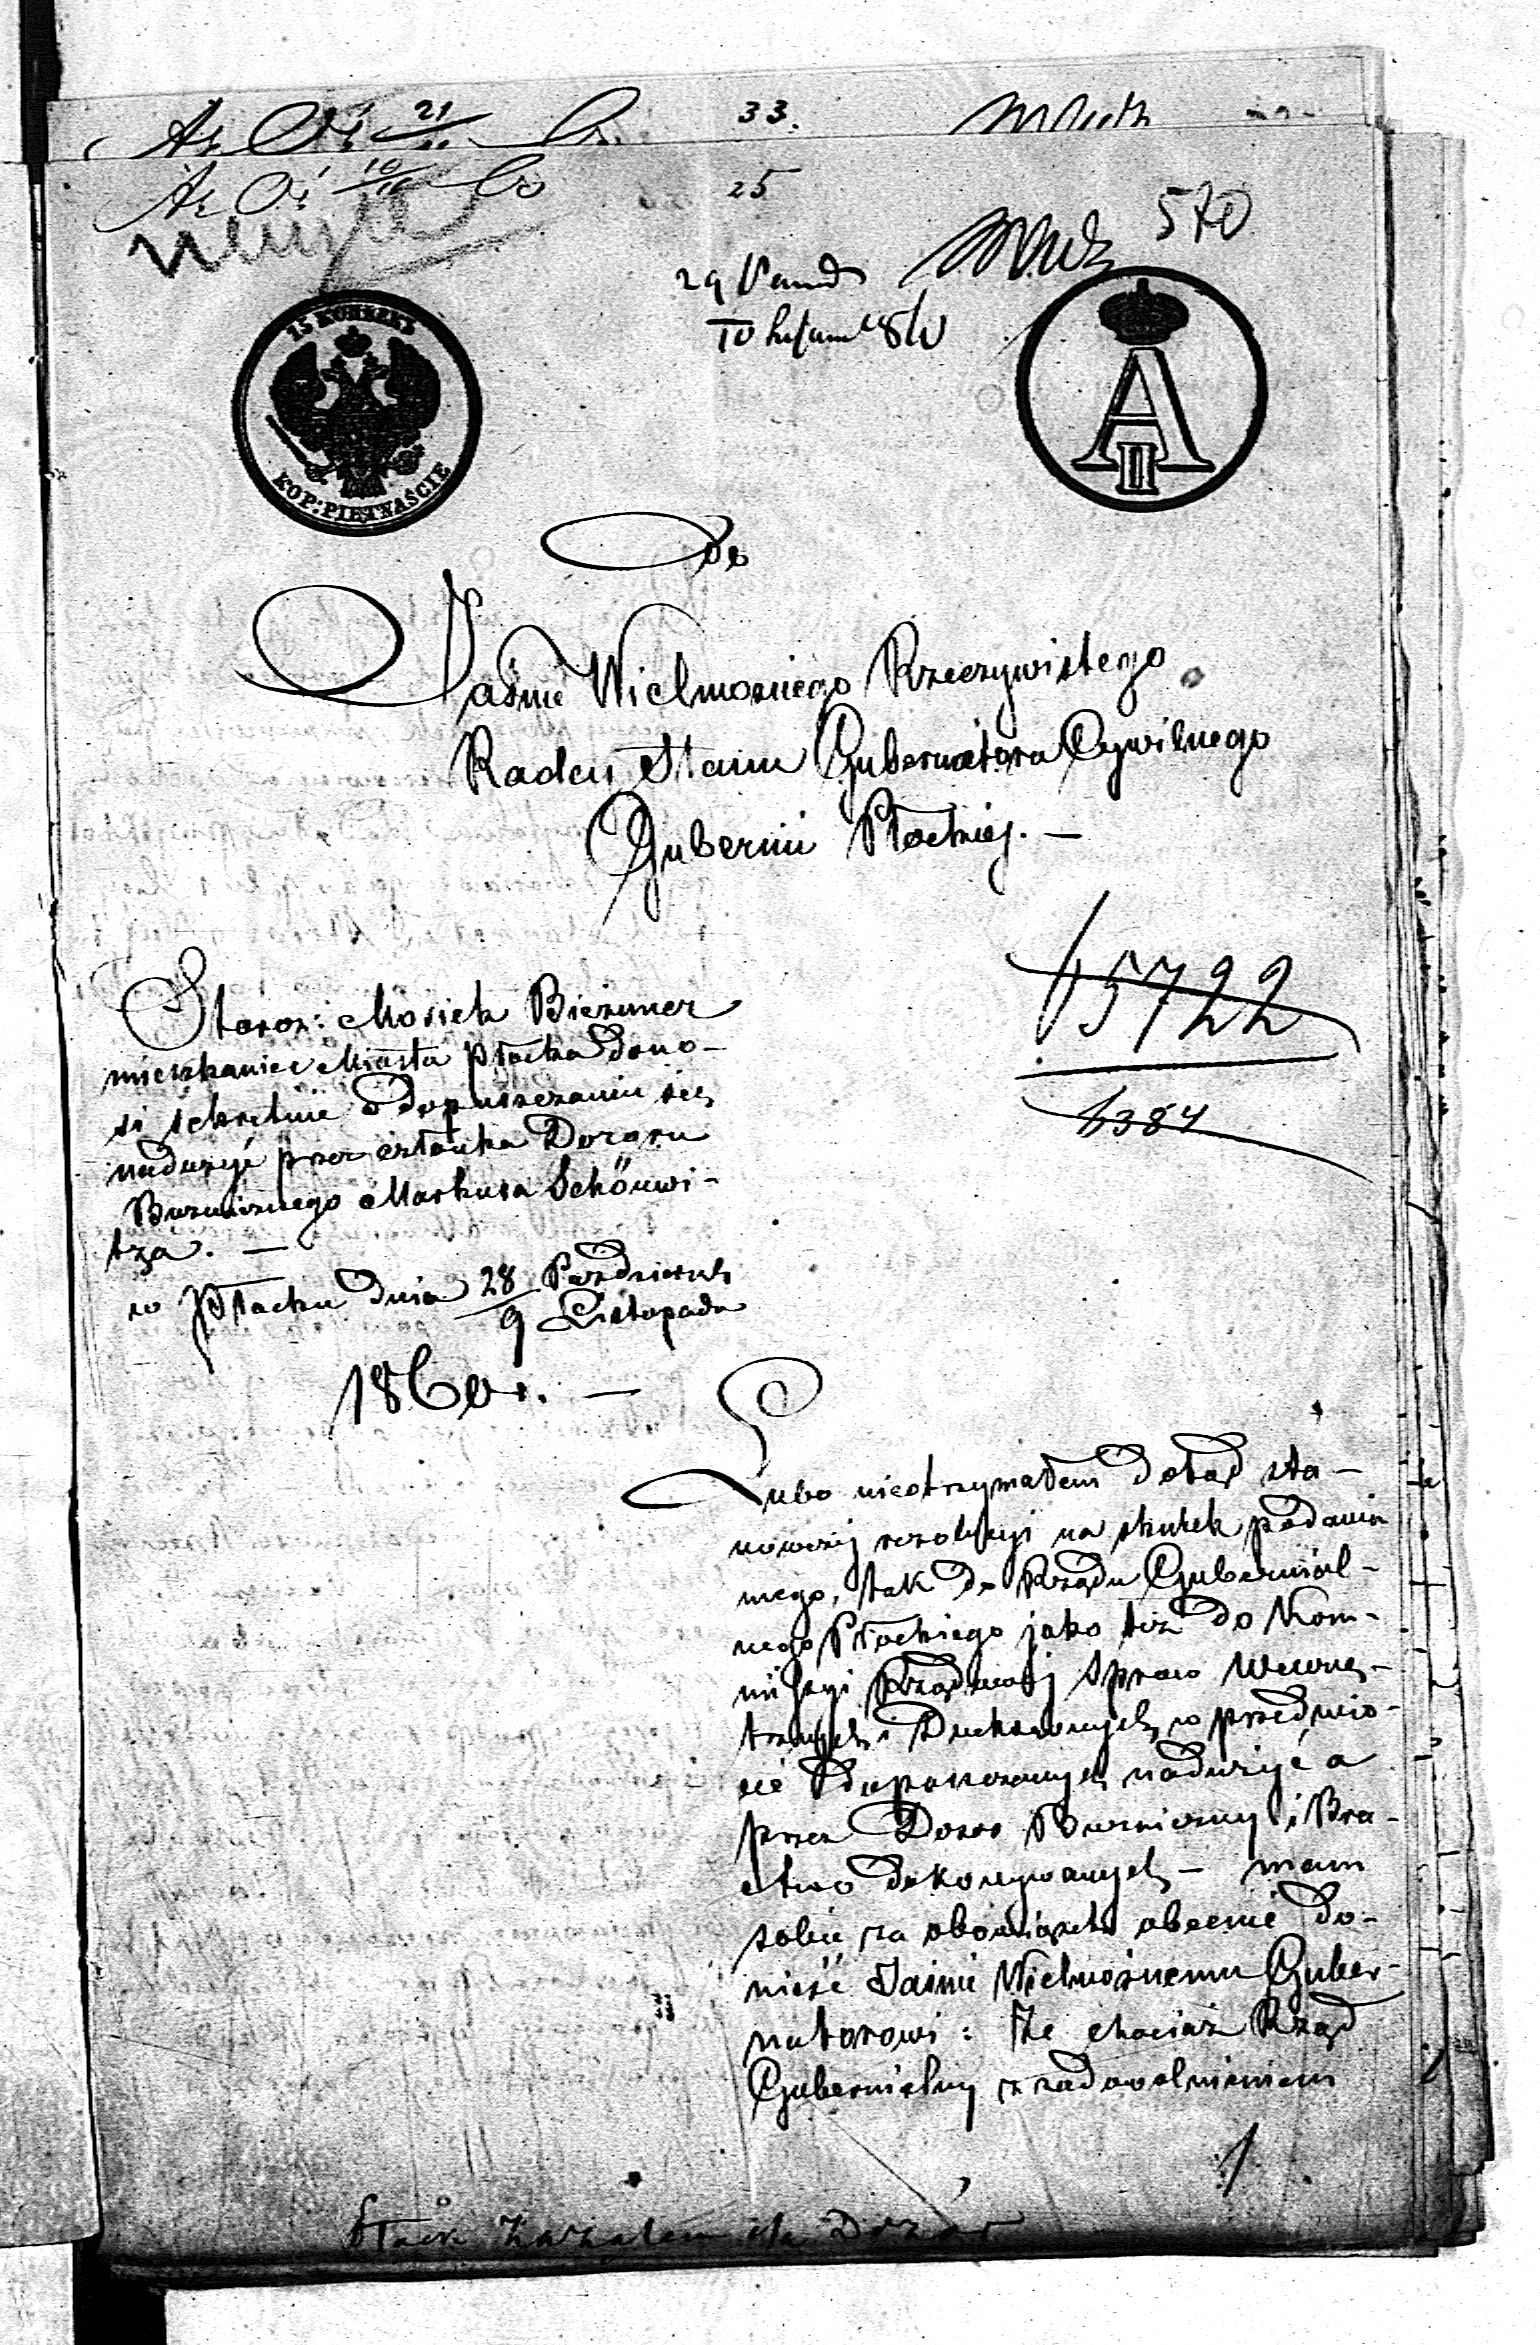 33.
25
570
15 KOPIEKЪ
KOP: PIĘTNAŚCIE
A
II
Do
Jaśnie Wielmożnego Rzeczywistego
Radcy Stanu Gubernatora Cywilnego
Gubernii Płockiej. —
Staroz: Mosiek Bieżuner
mieszkaniec Miasta Płocka dono-
si sekretnie o dopuszczaniu się
nadużyć przez członka Dozoru
Bużnicznego Markusa Schönwi-
tza. —
w Płocku dnia 28/9 Października/Listopada
1860 r. —
65722
6384
Lubo nieotrzymałem dotąd sta-
nowczej rezolucyi na skutek podania
mego, tak do Rządu Gubernial-
nego Płockiego jako też do Kom-
missyi Rządowej Spraw Wewnę-
trznych i Duchownych w przedmio-
cie nadużyć a
przez Dozór Bużniczny i Bra-
ctwo dokonywanych — mam
sobie za obowiązek obecnie do-
nieść Jaśnie Wielmożnemu Guber-
natorowi: że chociaż Rząd
Gubernialny z zadowolnieniem
1